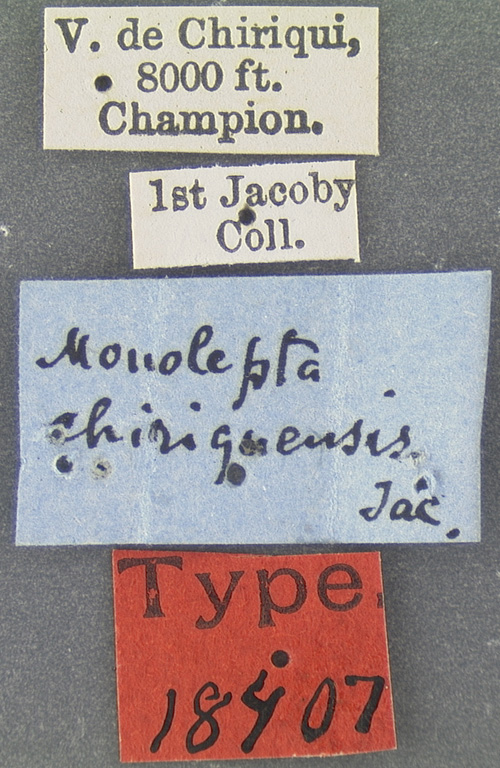 V. de Chiriqui,
8000 ft.
Champion.
1st Jacoby
Coll.
Monolepta
chiriquensis
Jac.
Type.
18407